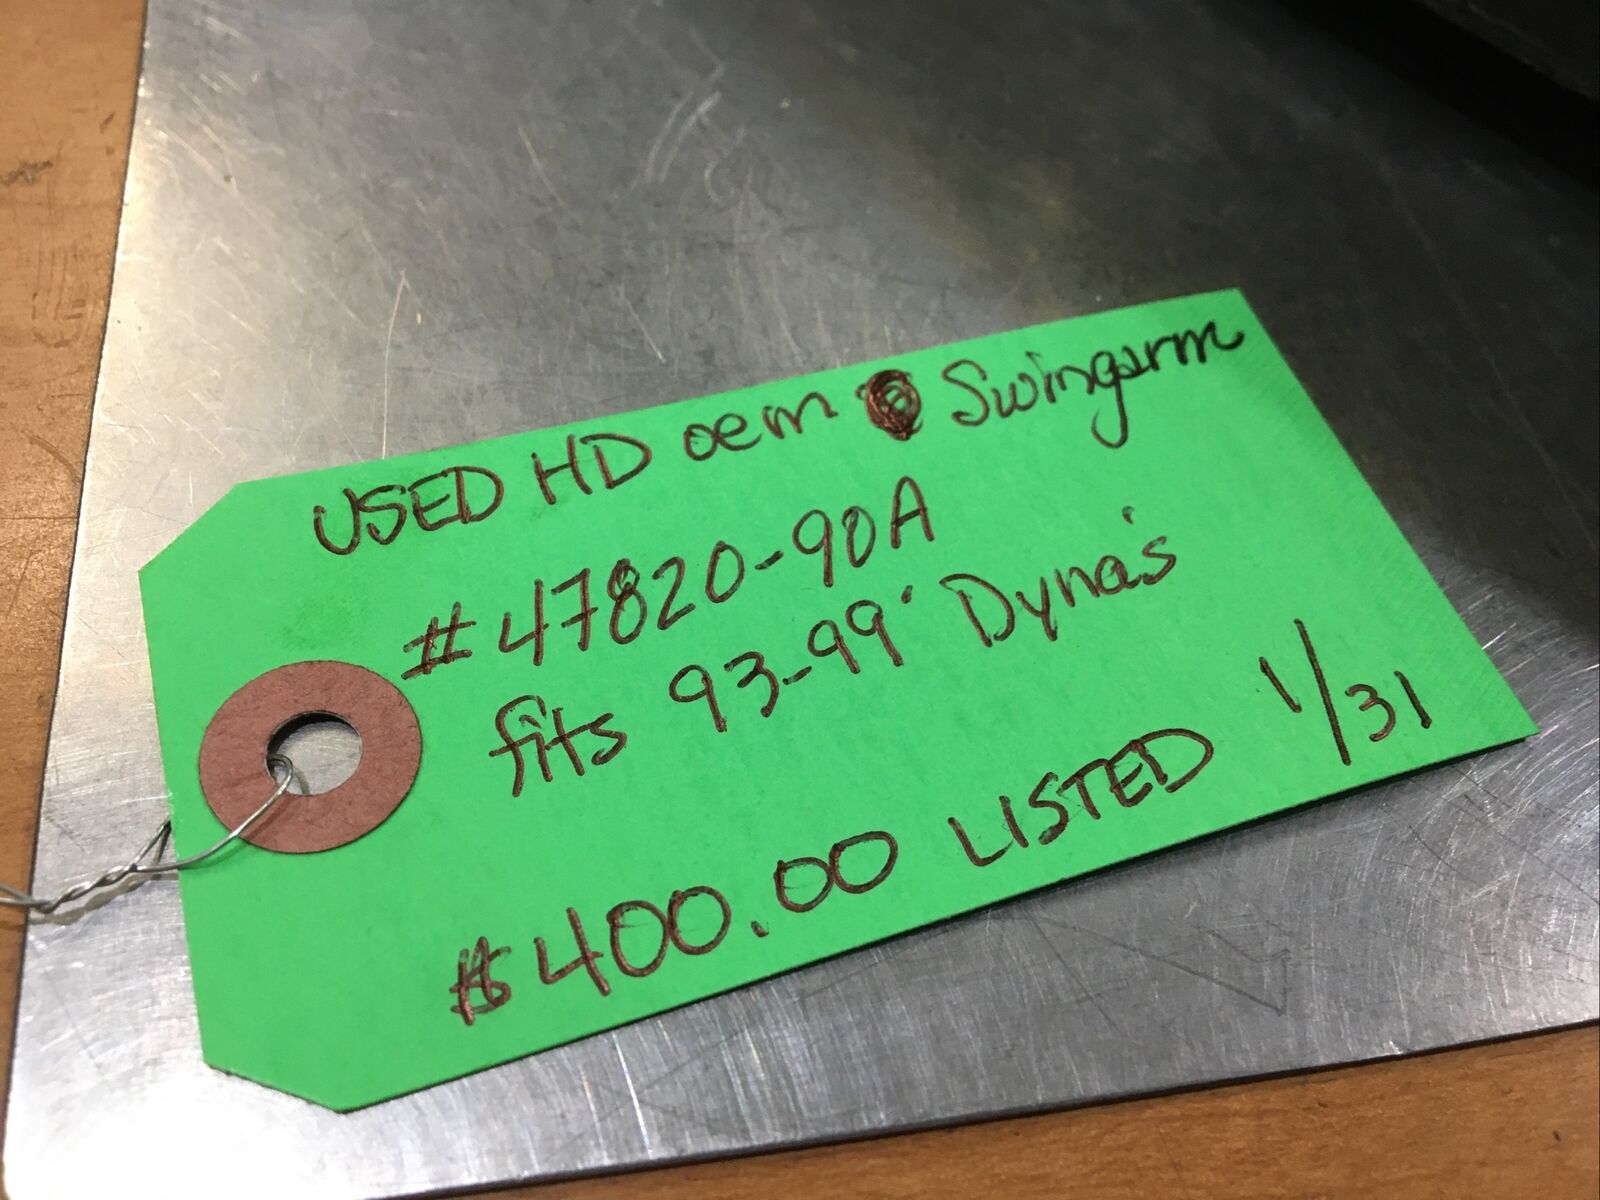 USED HD oem Swingarm
#47820-90A
fits 93-99' Dyna's
$400.00 LISTED 1/31